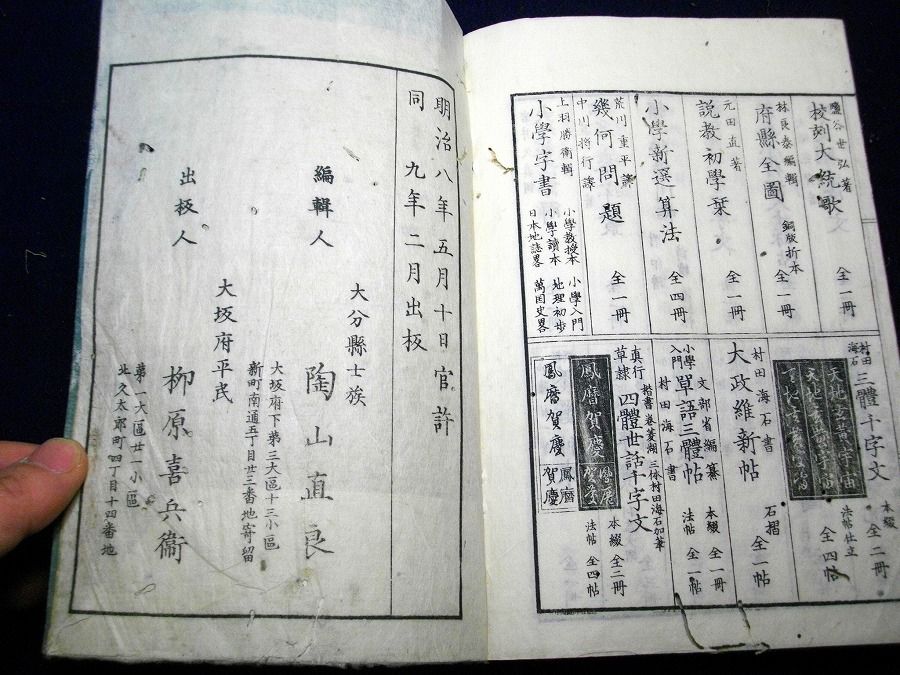 鹽谷世弘著
校刻大統歌 全一冊
林長泰編輯
府縣全圖 銅版折本 全一冊
元田直著
説教初學栞 全一冊
小學新選算法 全四冊
荒川重平譯
中川将行譯
幾何問題 全一冊
上羽勝衛輯
小學字書
小學教授本 小學入門
小學讀本 地理初歩
日本地誌畧 萬国史畧
村田海石 三體千字文 本綴 全二冊
法帖仕立 全四帖
村田海石書
大政維新帖 石摺 全一帖
小學入門 單語三體帖
文部省編纂 本綴 全一冊
村田海石書 法帖 全一帖
真行草隷 四體世話千字文
楷書巻菱湖 三体村田海石加筆
鳳暦賀慶 本綴 全二冊
法帖 全四帖
鳳暦賀慶
鳳暦賀慶
明治八年五月十日官許
同 九年二月出板
大分縣士族
編輯人 陶山直良
大坂府下第三大區十三小區
新町南通五丁目廿三番地寄留
大坂府平民
出板人 柳原喜兵衞
第一大區廿一小區
北久太郎町四丁目十四番地